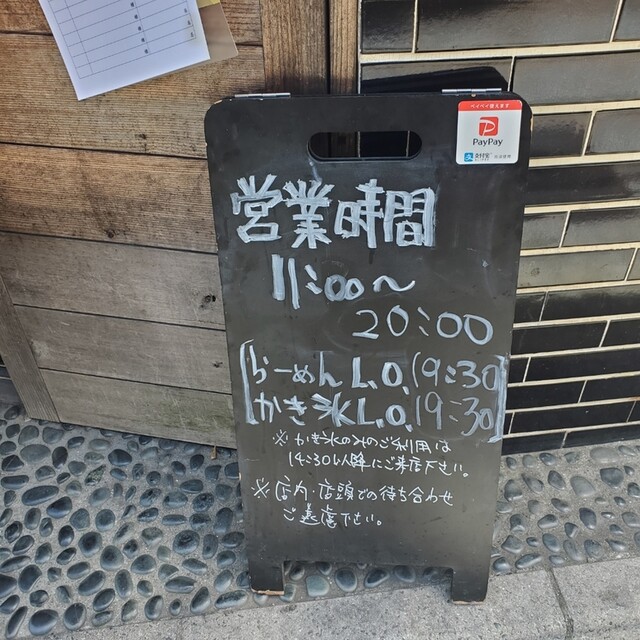 ペイペイ使えます
PayPay
支付宝
営業時間
11:00～
20:00
らーめん L.O. 19:30
かき氷 L.O. 19:30
※かき氷のみのご利用は
14:30以降にご来店下さい。
※店内・店頭での待ち合わせ
ご遠慮下さい。